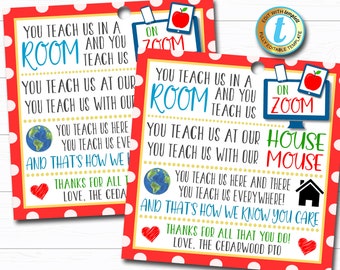 YOU TEACH US IN A
ROOM AND YOU
TEACH US
ON
ZOOM
YOU TEACH US AT OUR
YOU TEACH US WITH OUR
YOU TEACH US HERE
YOU TEACH US EVE
AND THAT'S HOW WE
THANKS FOR ALL T
LOVE, THE CEDARW
EDIT WITH templett
FULL EDITABLE TEMPLATE
t
YOU TEACH US IN A
ROOM AND YOU
TEACH US
ON
ZOOM
YOU TEACH US AT OUR HOUSE
YOU TEACH US WITH OUR MOUSE
YOU TEACH US HERE AND THERE
YOU TEACH US EVERYWHERE!
AND THAT'S HOW WE KNOW YOU CARE
THANKS FOR ALL THAT YOU DO!
LOVE, THE CEDARWOOD PTO